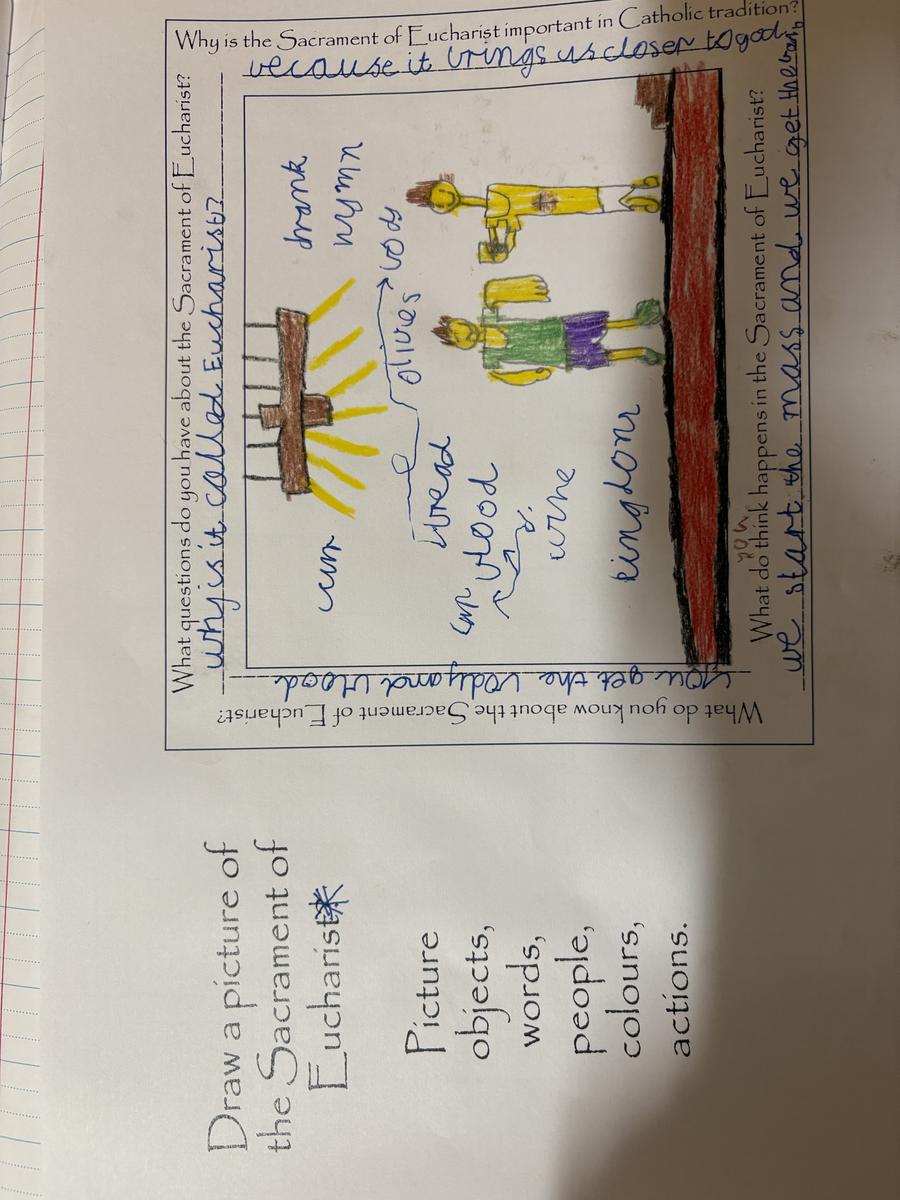 Draw a picture of
the Sacrament of
Eucharist*
Picture
objects,
words,
people,
colours,
actions.
What questions do you have about the Sacrament of Eucharist?
why is it called Eucharist?
Why is the Sacrament of Eucharist important in Catholic tradition?
because it brings us closer to god.
What do you know about the Sacrament of Eucharist?
you get the body and blood
What do you think happens in the Sacrament of Eucharist?
we start the mass and we get the
drank
hymn
olives
bread
blood
wine